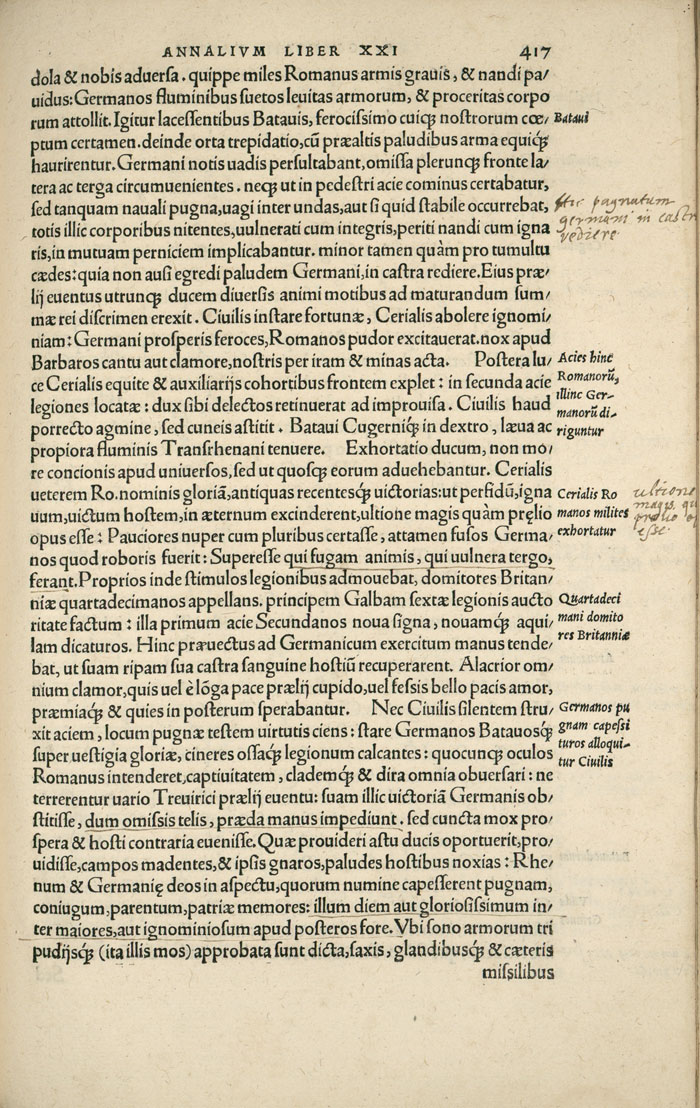 ANNALIVM LIBER XXI 417
dola & nobis aduersa. quippe miles Romanus armis grauis, & nandi pa/
uidus: Germanos fluminibus suetos leuitas armorum, & proceritas corpo
rum attollit. Igitur lacessentibus Batauis, ferocissimo cuiqȝ nostrorum cœ/
Bataui
ptum certamen. deinde orta trepidatio, cū præaltis paludibus arma equiqȝ
haurirentur. Germani notis uadis persultabant, omissa plerunqȝ fronte la/
tera ac terga circumuenientes. neqȝ ut in pedestri acie cominus certabatur,
sed tanquam nauali pugna, uagi inter undas, aut si quid stabile occurrebat,
totis illic corporibus nitentes, uulnerati cum integris, periti nandi cum igna
pugnatum
germani in castra
rediere
ris, in mutuam perniciem implicabantur. minor tamen quàm pro tumultu
cædes: quia non ausi egredi paludem Germani, in castra rediere. Eius præ/
lij euentus utrunqȝ ducem diuersis animi motibus ad maturandum sum/
mæ rei discrimen erexit. Ciuilis instare fortunæ, Cerialis abolere ignomi/
niam: Germani prosperis feroces, Romanos pudor excitauerat. nox apud
Barbaros cantu aut clamore, nostris per iram & minas acta. Postera lu/
ce Cerialis equite & auxiliarijs cohortibus frontem explet: in secunda acie
legiones locatæ: dux sibi delectos retinuerat ad improuisa. Ciuilis haud
porrecto agmine, sed cuneis astitit. Bataui Cugerniqȝ in dextro, læua ac
Acies hinc
Romanorū,
illinc Ger-
manorū di-
riguntur
propiora fluminis Transrhenani tenuere. Exhortatio ducum, non mo/
re concionis apud uniuersos, sed ut quosqȝ eorum aduehebantur. Cerialis
ueterem Ro. nominis gloriā, antiquas recentesqȝ uictorias: ut perfidū, igna
uum, uictum hostem, in æternum excinderent, ultione magis quàm pręlio
opus esse: Pauciores nuper cum pluribus certasse, attamen fusos Germa/
Cerialis Ro
manos milites
exhortatur
ultione
magis
prelio
esse
nos quod roboris fuerit: Superesse qui fugam animis, qui uulnera tergo,
ferant. Proprios inde stimulos legionibus admouebat, domitores Britan/
niæ quartadecimanos appellans. principem Galbam sextæ legionis aucto
ritate factum: illa primum acie Secundanos noua signa, nouamqȝ aqui/
lam dicaturos. Hinc præuectus ad Germanicum exercitum manus tende/
Quartadeci
mani domito
res Britanniæ
bat, ut suam ripam sua castra sanguine hostiū recuperarent. Alacrior om/
nium clamor, quis uel è lōga pace prælij cupido, uel fessis bello pacis amor,
præmiaqȝ & quies in posterum sperabantur. Nec Ciuilis silentem stru/
xit aciem, locum pugnæ testem uirtutis ciens: stare Germanos Batauosqȝ
super uestigia gloriæ, cineres ossaqȝ legionum calcantes: quocunqȝ oculos
Romanus intenderet, captiuitatem, clademqȝ & dira omnia obuersari: ne
Germanos pu
gnam capessi
turos alloqui-
tur Ciuilis
terrerentur uario Treuirici prælij euentu: suam illic uictoriā Germanis ob/
stitisse, dum omissis telis, præda manus impediunt. sed cuncta mox pro/
spera & hosti contraria euenisse. Quæ prouideri astu ducis oportuerit, pro/
uidisse, campos madentes, & ipsis gnaros, paludes hostibus noxias: Rhe/
num & Germanię deos in aspectu, quorum numine capesserent pugnam,
coniugum, parentum, patriæ memores: illum diem aut gloriosissimum in/
ter maiores, aut ignominiosum apud posteros fore. Vbi sono armorum tri
pudijsqȝ (ita illis mos) approbata sunt dicta, saxis, glandibusqȝ & cæteris
missilibus